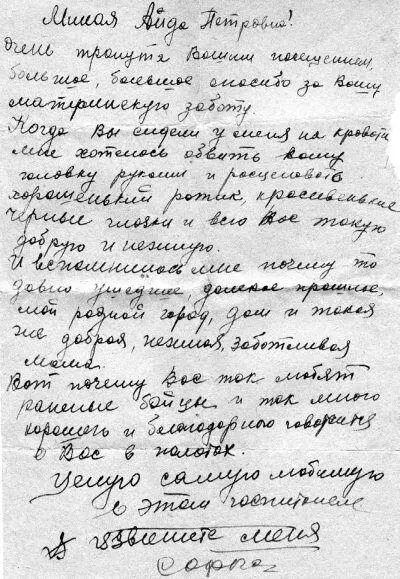 Милая Аида Петровна!
Очень тронута Вашим посещением,
большое, большое спасибо за Вашу
материнскую заботу.
Когда Вы сидели у меня на кровати
мне хотелось обвить Вашу
головку руками и расцеловать
хорошенький ротик, красивенькие
черные глазки и всю Вас такую
добрую и нежную.
И вспомнилось мне почему то
давно ушедшее, далекое прошлое,
мой родной город, дом и такая
же добрая, нежная, заботливая
мама.
Вот почему Вас так любят
раненые бойцы и так много
хорошего и благодарного говорится
о Вас в палатах.
Целую самую любимую
в этом госпитале
извините меня